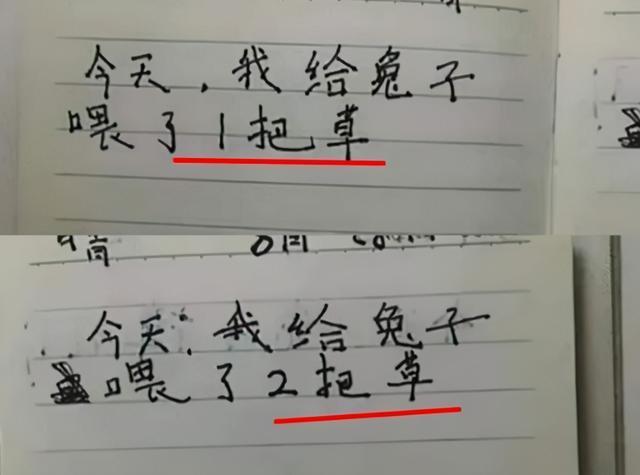 今天,我给兔子
喂了1把草
晴
今天,我给兔子
喂了2把草